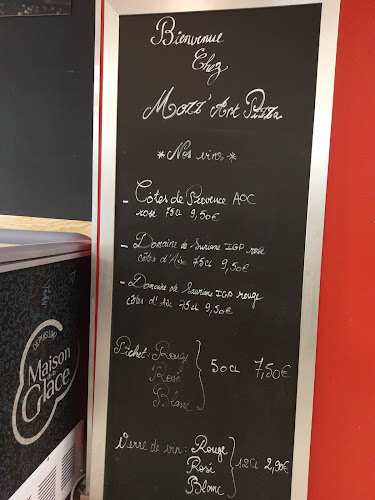 Bienvenue
Chez
Mozz'Art Pizza
* Nos vins *
- Côtes de Provence AOC
rosé 75cl 9,50€
- Domaine de IGP rosé
75cl 9,50€
- Domaine de IGP rouge
75cl 9,50€
Pichet: Rouge
Rosé 50cl 7,50€
Blanc
Verre de vin: Rouge
Rosé 12cl 2,90€
Blanc
DEPUIS
Maison
Glace